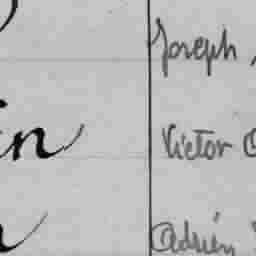 Joseph
in Victor
Adrien